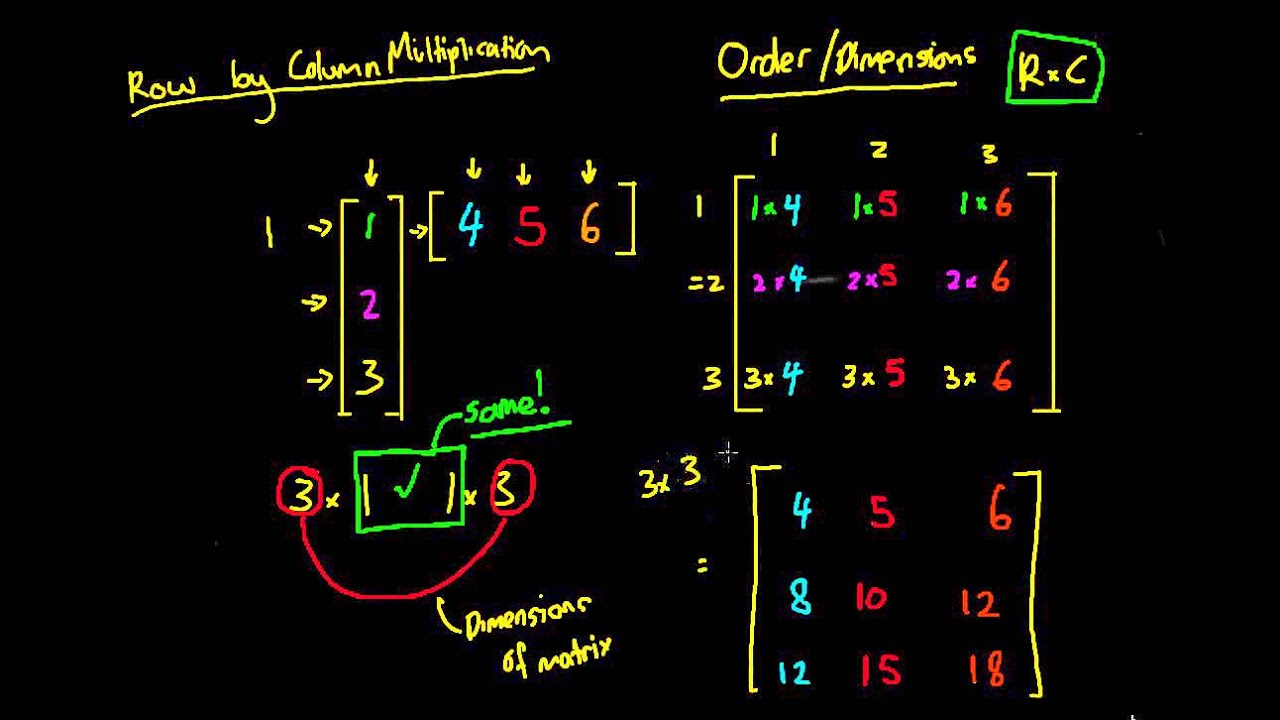 Row by Column Multiplication
Order/Dimensions
R×C
↓ ↓ ↓ ↓
1 → [1] → [4 5 6]
→ [2]
→ [3]
same!
3 × 1 ✓ 1 × 3
Dimensions
of matrix
1 2 3
1 [1×4 1×5 1×6]
=2 [2×4 2×5 2×6]
3 [3×4 3×5 3×6]
3×3
= [4 5 6]
[8 10 12]
[12 15 18]